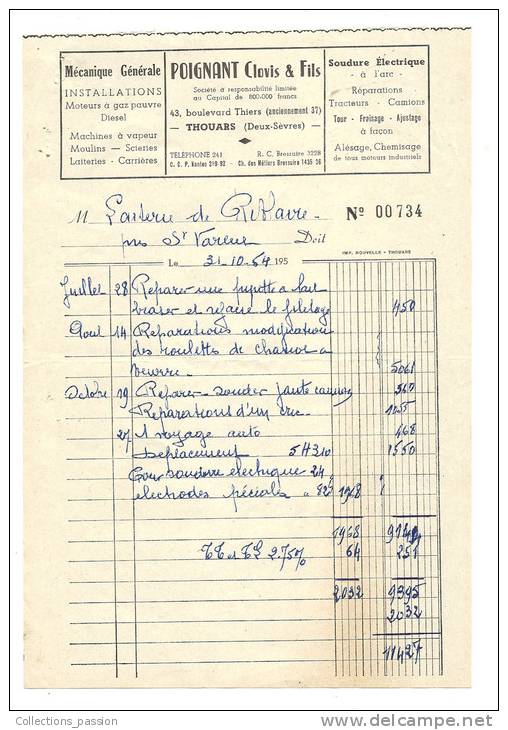 Mécanique Générale
INSTALLATIONS
Moteurs à gaz pauvre
Diesel
Machines à vapeur
Moulins — Scieries
Laiteries - Carrières
POIGNANT Clovis & Fils
Société à responsabilité limitée
au Capital de 800-000 francs
43, boulevard Thiers (anciennement 37)
— THOUARS (Deux-Sèvres) —
TÉLÉPHONE 241 R. C. Bressuire 3228
C. C. P. Nantes 319-92 - Ch. des Métiers Bressuire 1435 36
Soudure Électrique
- à l'arc -
Réparations
Tracteurs - Camions
Tour - Fraisage - Ajustage
à façon
Alésage, Chemisage
de tous moteurs industriels
M Laiterie de Riblaire
Nº 00734
près St Varent Doit
IMP. NOUVELLE - THOUARS
Le 31-10-54 195
Juillet 28 Réparer une pipette a lait
braser et refaire le filetage 450
Aout 14 Réparations modification
des roulettes de chariot a
beurre 5061
Octobre 19 Réparer souder jante camion 560
Réparations d'un cric 1025
27 1 voyage auto 468
Déplacement 5H310 1550
Pour soudure électrique 24
électrodes spéciales a 82 1968
1968 9144
TT et TL 2.75% 64 251
2032 9395
2032
11427
Collections_passion
delcampe.net